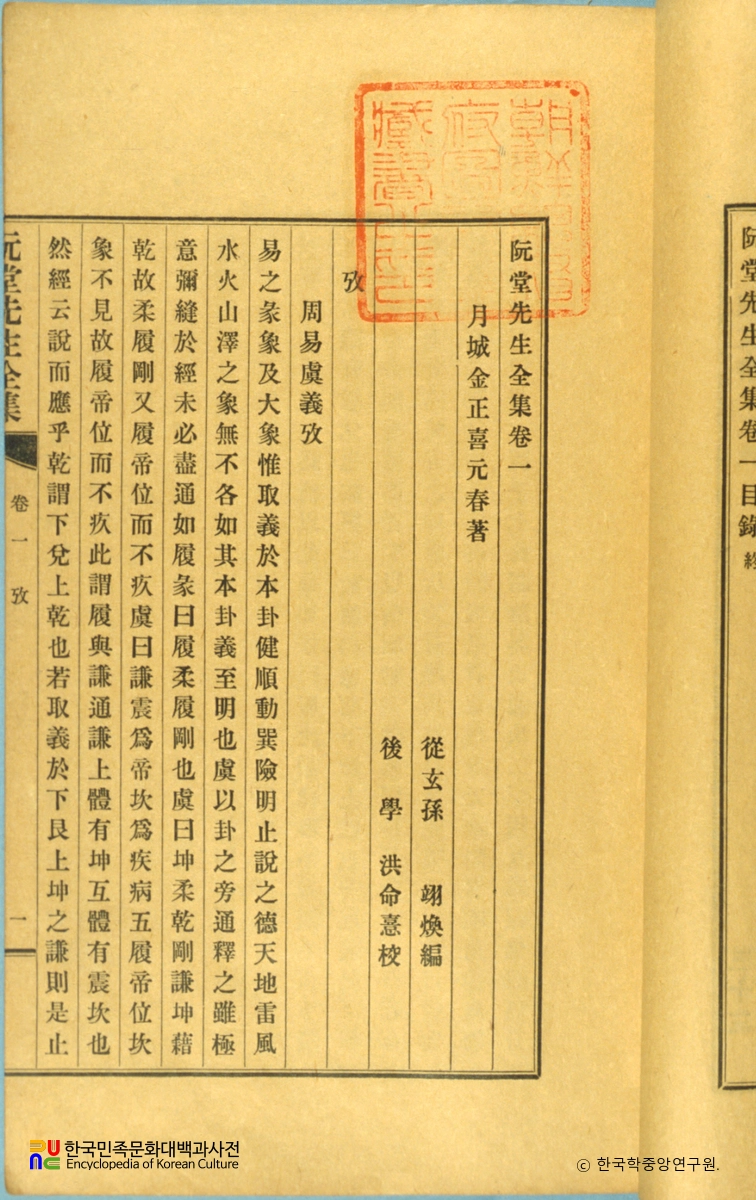 阮堂先生全集卷一目錄
阮堂先生全集卷一
月城金正喜元春著
從玄孫 翊煥編
後學 洪命憙校
攷
周易虞義攷
易之彖象及大象惟取義於本卦健順動巽險明止說之德天地雷風
水火山澤之象無不各如其本卦義至明也虞以卦之旁通釋之雖極
意彌縫於經未必盡通如履彖曰履柔履剛也虞曰坤柔乾剛謙坤藉
乾故柔履剛又履帝位而不疚虞曰謙震爲帝坎爲疾病五履帝位坎
象不見故履帝位而不疚此謂履與謙通謙上體有坤互體有震坎也
然經云說而應乎乾謂下兌上乾也若取義於下艮上坤之謙則是止
阮堂先生全集
卷一 攷
一
한국민족문화대백과사전
Encyclopedia of Korean Culture
ⓒ 한국학중앙연구원.